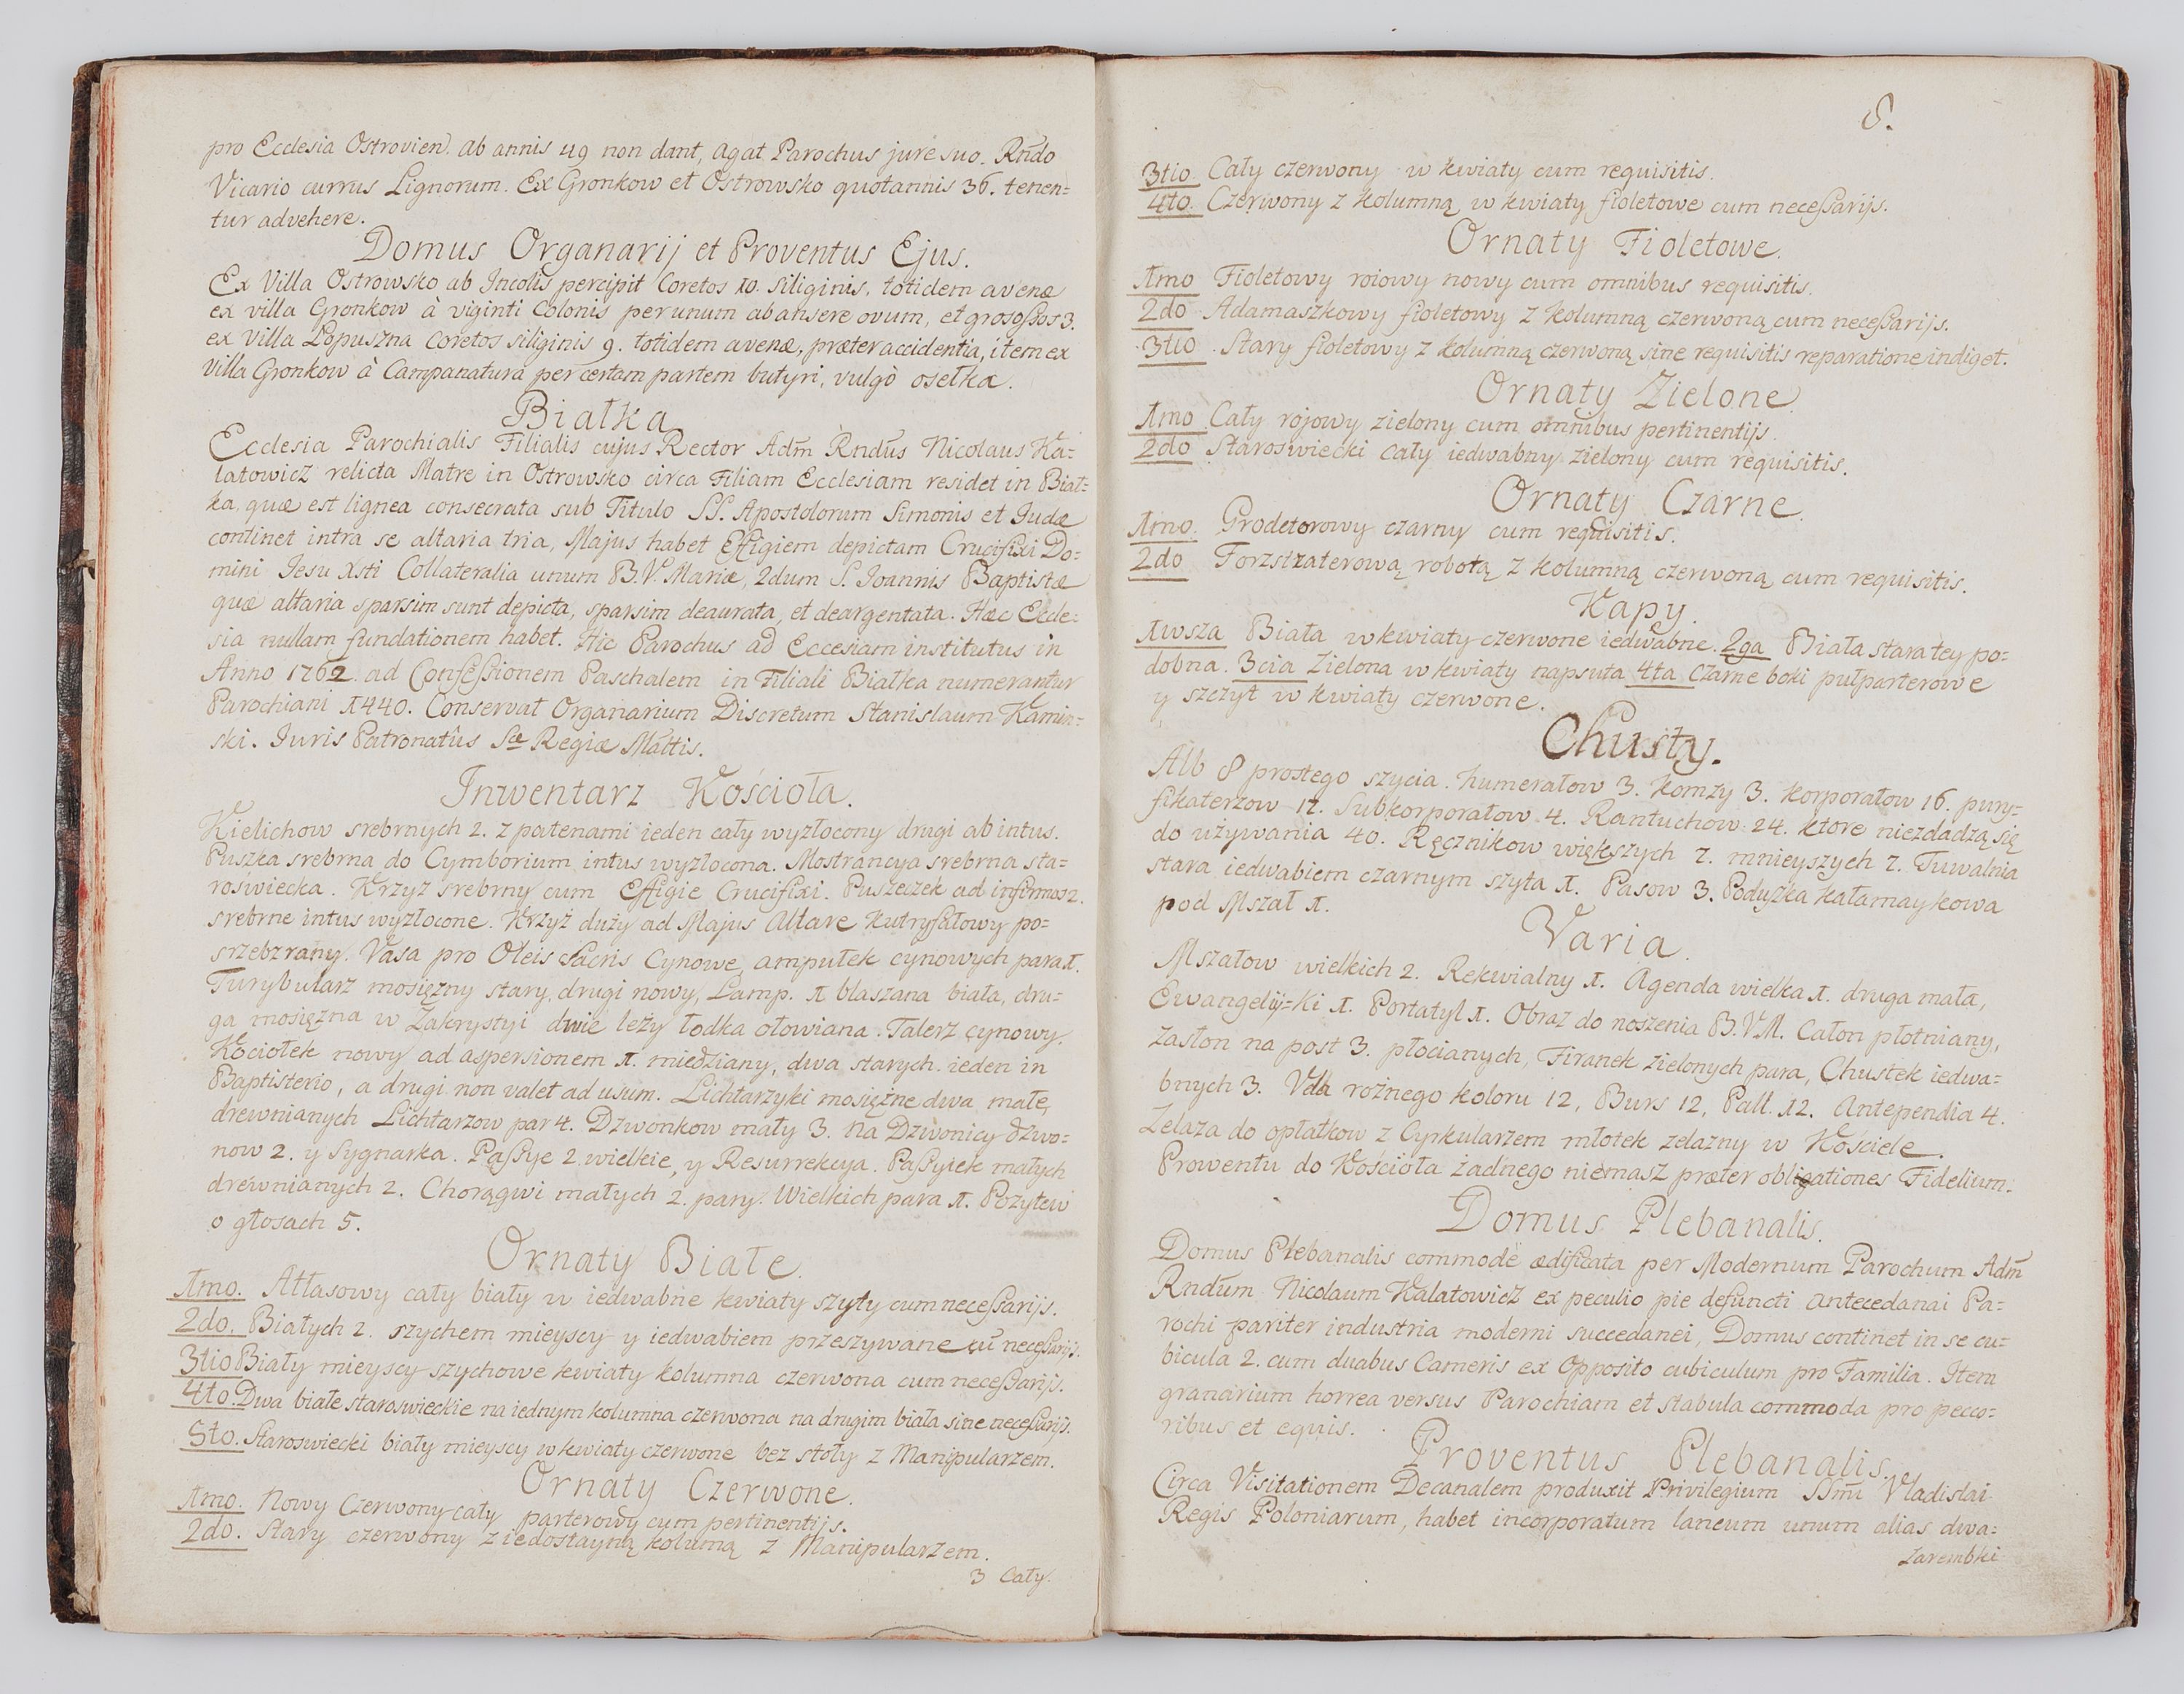 pro Ecclesia Ostrovien. ab annis 49 non dant, agat Parochus jure suo. Rndo
Vicario currus Lignorum. Ex Gronkow et Ostrowsko quotannis 36. tenen=
tur advehere.
Domus Organarij et Proventus Ejus.
Ex Villa Ostrowsko ab Incolis percipit Coretos 10. siliginis, totidem avenæ
ex villa Gronkow à viginti Colonis per unum ab ansere ovum, et grossos 3.
ex Villa Łopuszna Coretos siliginis 9. totidem avenæ, præter accidentia, item ex
Villa Gronkow à Campanatura per certam partem butyri, vulgò osełka.
Białka
Ecclesia Parochialis Filialis cujus Rector Adm Rndus Nicolaus Ka=
łatowicz relicta Matre in Ostrowsko circa Filiam Ecclesiam residet in Biał=
ka, quæ est lignea consecrata sub Titulo SS. Apostolorum Simonis et Judæ
continet intra se altaria tria, Majus habet Effigiem depictam Crucifixi Do=
mini Jesu Xsti Collateralia unum B.V. Mariæ, 2dum S. Joannis Baptistæ
quæ altaria sparsim sunt depicta, sparsim deaurata, et deargentata. Hæc Eccle=
sia nullam fundationem habet. Hic Parochus ad Eccesiam institutus in
Anno 1762. ad Confessionem Paschalem in Filiali Białka numerantur
Parochiani 1440. Conservat Organarium Discretum Stanislaum Kamin=
ski. Juris Patronatûs Sæ Regiæ Mattis.
Inwentarz Kościoła.
Kielichow srebrnych 2. z patenami ieden cały wyzłocony drugi ab intus.
Puszka srebrna do Cymborium intus wyzłocona. Mostrancya srebrna sta=
roświecka. Krzyż srebrny cum Effigie Crucifixi. Puszeczek ad infirmos 2.
srebrne intus wyzłocone. Krzyż duży ad Majus Altare Kutryfałowy po=
srzebzrany. Vasa pro Oleis Sacris Cynowe, ampułek cynowych para 1.
Turybularz mosiężny stary, drugi nowy, Lamp. 1 blaszana biała, dru=
ga mosiężna w Zakrystyi dwie leży łodka ołowiana. Talerz cynowy.
Kociołek nowy ad aspersionem 1. miedziany, dwa starych ieden in
Baptisterio, a drugi non valet ad usum. Lichtarzyki mosiężne dwa małe,
drewnianych Lichtarzow par 4. Dzwonkow mały 3. na Dzwonicy dzwo=
now 2. y Sygnarka. Passye 2 wielkie, y Resurrekcya. Passyiek małych
drewnianych 2. Chorągwi małych 2. pary. Wielkich para 1. Pozytew
o głosach 5.
Ornaty Białe.
1mo. Atłasowy cały biały w iedwabne kwiaty szyty cum necessarijs.
2do. Białych 2. szychem mieyscy y iedwabiem przeszywane cū necessarijs.
3tio Biały mieyscy szychowe kwiaty kolumna czerwona cum necessarijs.
4to. Dwa białe staroswieckie na iednym kolumna czerwona na drugim biała sine necessarijs.
5to. Staroswiecki biały mieyscy w kwiaty czerwone bez stoły z Manipularzem.
Ornaty Czerwone.
1mo. Nowy Czerwony cały parterowy cum pertinentijs.
2do. Stary czerwony z iedostayną kolumą z Manipularzem.
3 Cały.
8.
3tio. Cały czerwony w kwiaty cum requisitis.
4to. Czerwony z kolumną w kwiaty fioletowe cum necessarijs.
Ornaty Fioletowe.
1mo Fioletowy roiowy nowy cum omnibus requisitis.
2do Adamaszkowy fioletowy z kolumną czerwoną cum necessarijs.
3tio Stary fioletowy z kolumną czerwoną sine requisitis reparatione indiget.
Ornaty Zielone.
1mo Cały rojowy zielony cum omnibus pertinentijs.
2do Staroswiecki cały iedwabny zielony cum requisitis.
Ornaty Czarne.
1mo. Grodetorowy czarny cum requisitis.
2do Forzsztaterową robotą z kolumną czerwoną cum requisitis.
Kapy.
1wsza Biała w kwiaty czerwone iedwabne. 2ga Biała stara tey po=
dobna. 3cia Zielona w kwiaty napsuta 4ta czarne boki pułparterowe
y szczyt w kwiaty czerwone.
Chusty.
Alb 8 prostego szycia. humerałow 3. Komzy 3. Korporałow 16. pury=
fikaterzow 17. Subkorporałow 4. Rantuchow 24. ktore niezdadzą się
do używania 40. Ręcznikow większych 7. mnieyszych 7. Tuwalnia
stara iedwabiem czarnym szyta 1. Pasow 3. Poduszka kałamaykowa
pod Mszał 1.
Varia.
Mszałow wielkich 2. Rekwialny 1. Agenda wielka 1. druga mała,
Ewangelij=ki 1. Portatyl 1. Obraz do noszenia B.V.M. Całon płotniany,
zasłon na post 3. płocianych, Firanek zielonych para, Chustek iedwa=
bnych 3. Vela rożnego koloru 12, Burs 12, Pall. 12. Antependia 4.
Zelaza do opłatkow z Cyrkularzem młotek zelazny w Kościele.
Prowentu do Kościoła żadnego niemasz præter obligationes Fidelium.
Domus Plebanalis.
Domus Plebanalis commodè ædificata per Modernum Parochum Adm
Rndum Nicolaum Kałatowicz ex peculio pie defuncti antecedanai Pa=
rochi pariter industria moderni succedanei, Domus continet in se cu=
bicula 2. cum duabus Cameris ex Opposito cubiculum pro Familia. Item
granarium horrea versus Parochiam et stabula commoda pro pecco=
ribus et equis.
Proventus Plebanalis.
Circa Visitationem Decanalem produxit Privilegium SSmi Vladislai
Regis Poloniarum, habet incorporatum laneum unum alias dwa=
zarembki